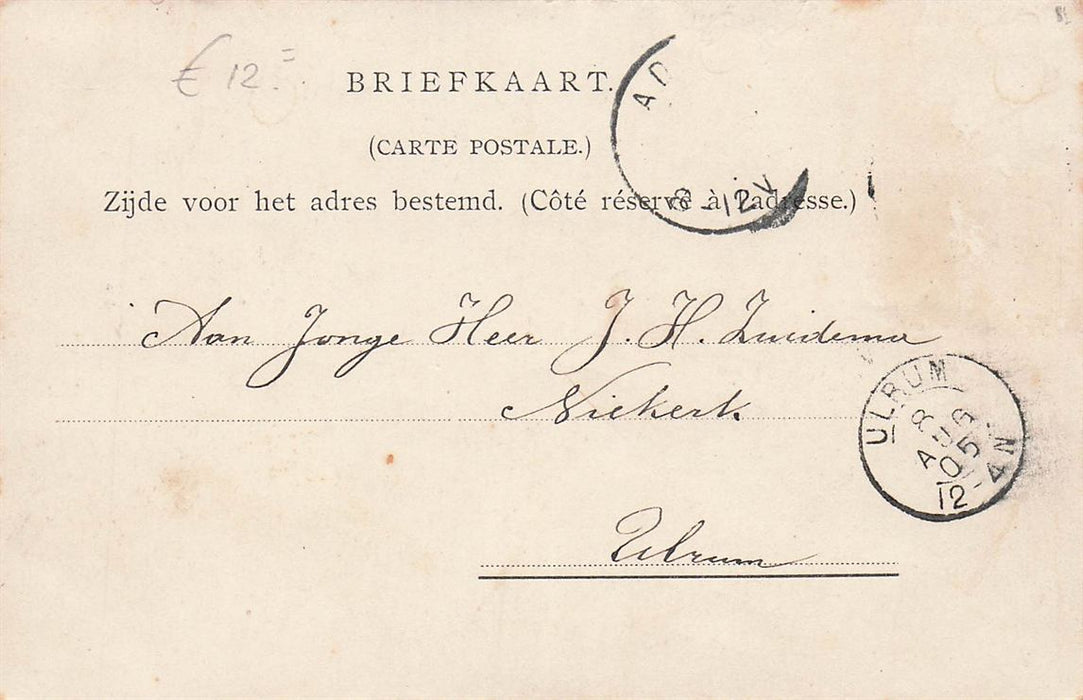 € 12.=
BRIEFKAART.
(CARTE POSTALE.)
Zijde voor het adres bestemd. (Côté réservé à l'adresse.)
AD
8-12V
Aan Jonge Heer J. H. Zuidema
Niekerk
Ulrum
ULRUM
8
AUG
05
12-4N